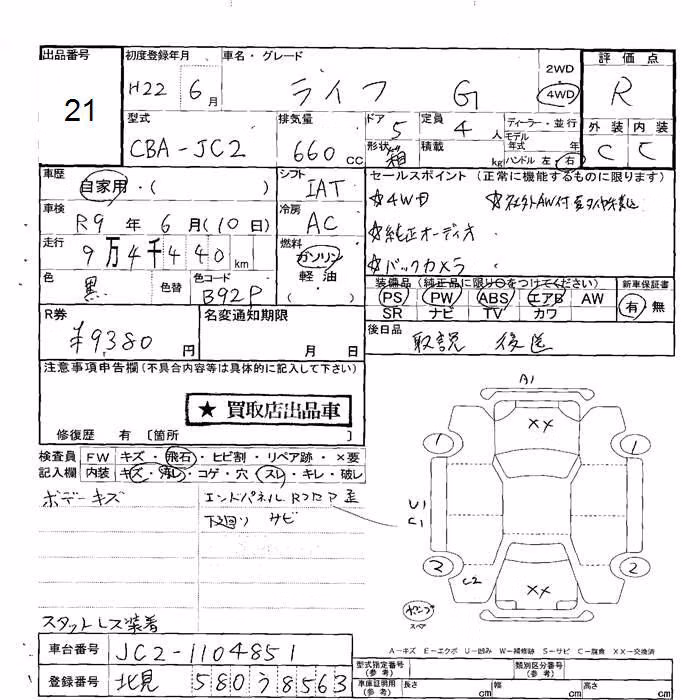 出品番号 初度登録年月 車名・グレード 評価点
21 H22 6月 ライフ G 2WD 4WD R
型式 排気量 ドア 定員 ディーラー・並行 外装 内装
CBA-JC2 660cc 5 4人 モデル年式 年 C C
形状 箱 積載 kg ハンドル 左・右
車歴 シフト セールスポイント (正常に機能するものに限ります)
自家用・( ) IAT ☆4WD ☆社外AW付夏タイヤ積込
車検 冷房
R9年 6月(10日) AC ☆純正オーディオ
走行 燃料
9万4千440km ガソリン 軽油 ( ) ☆バックカメラ
色 色替 色コード 装備品 (純正品に限り○をつけてください) 新車保証書
黒 B92P PS PW ABS エアB AW 有・無
SR ナビ TV カワ
R券 名変通知期限 後日品
¥9,380円 月 日 取説 後送
注意事項申告欄 (不具合内容等は具体的に記入して下さい)
★ 買取店出品車
修復歴 有 〔箇所 〕
検査員 FW キズ・飛石・ヒビ割・リペア跡・×要
記入欄 内装 キズ・汚レ・コゲ・穴・スレ・キレ・破レ
ボデーキズ エンドパネル Rフロア歪
下廻り サビ
スタットレス装着
A1
XX
1 1
U1
C1
2 2
C2
XX
スペア
A-キズ E-エクボ U-凹み W-補修跡 S-サビ C-腐食 XX-交換済
車台番号 JC2-1104851 型式指定番号 (参考) 類別区分番号 (参考)
登録番号 北見 580 う 8563 車庫証明用 (参考) 長さ cm 幅 cm 高さ cm